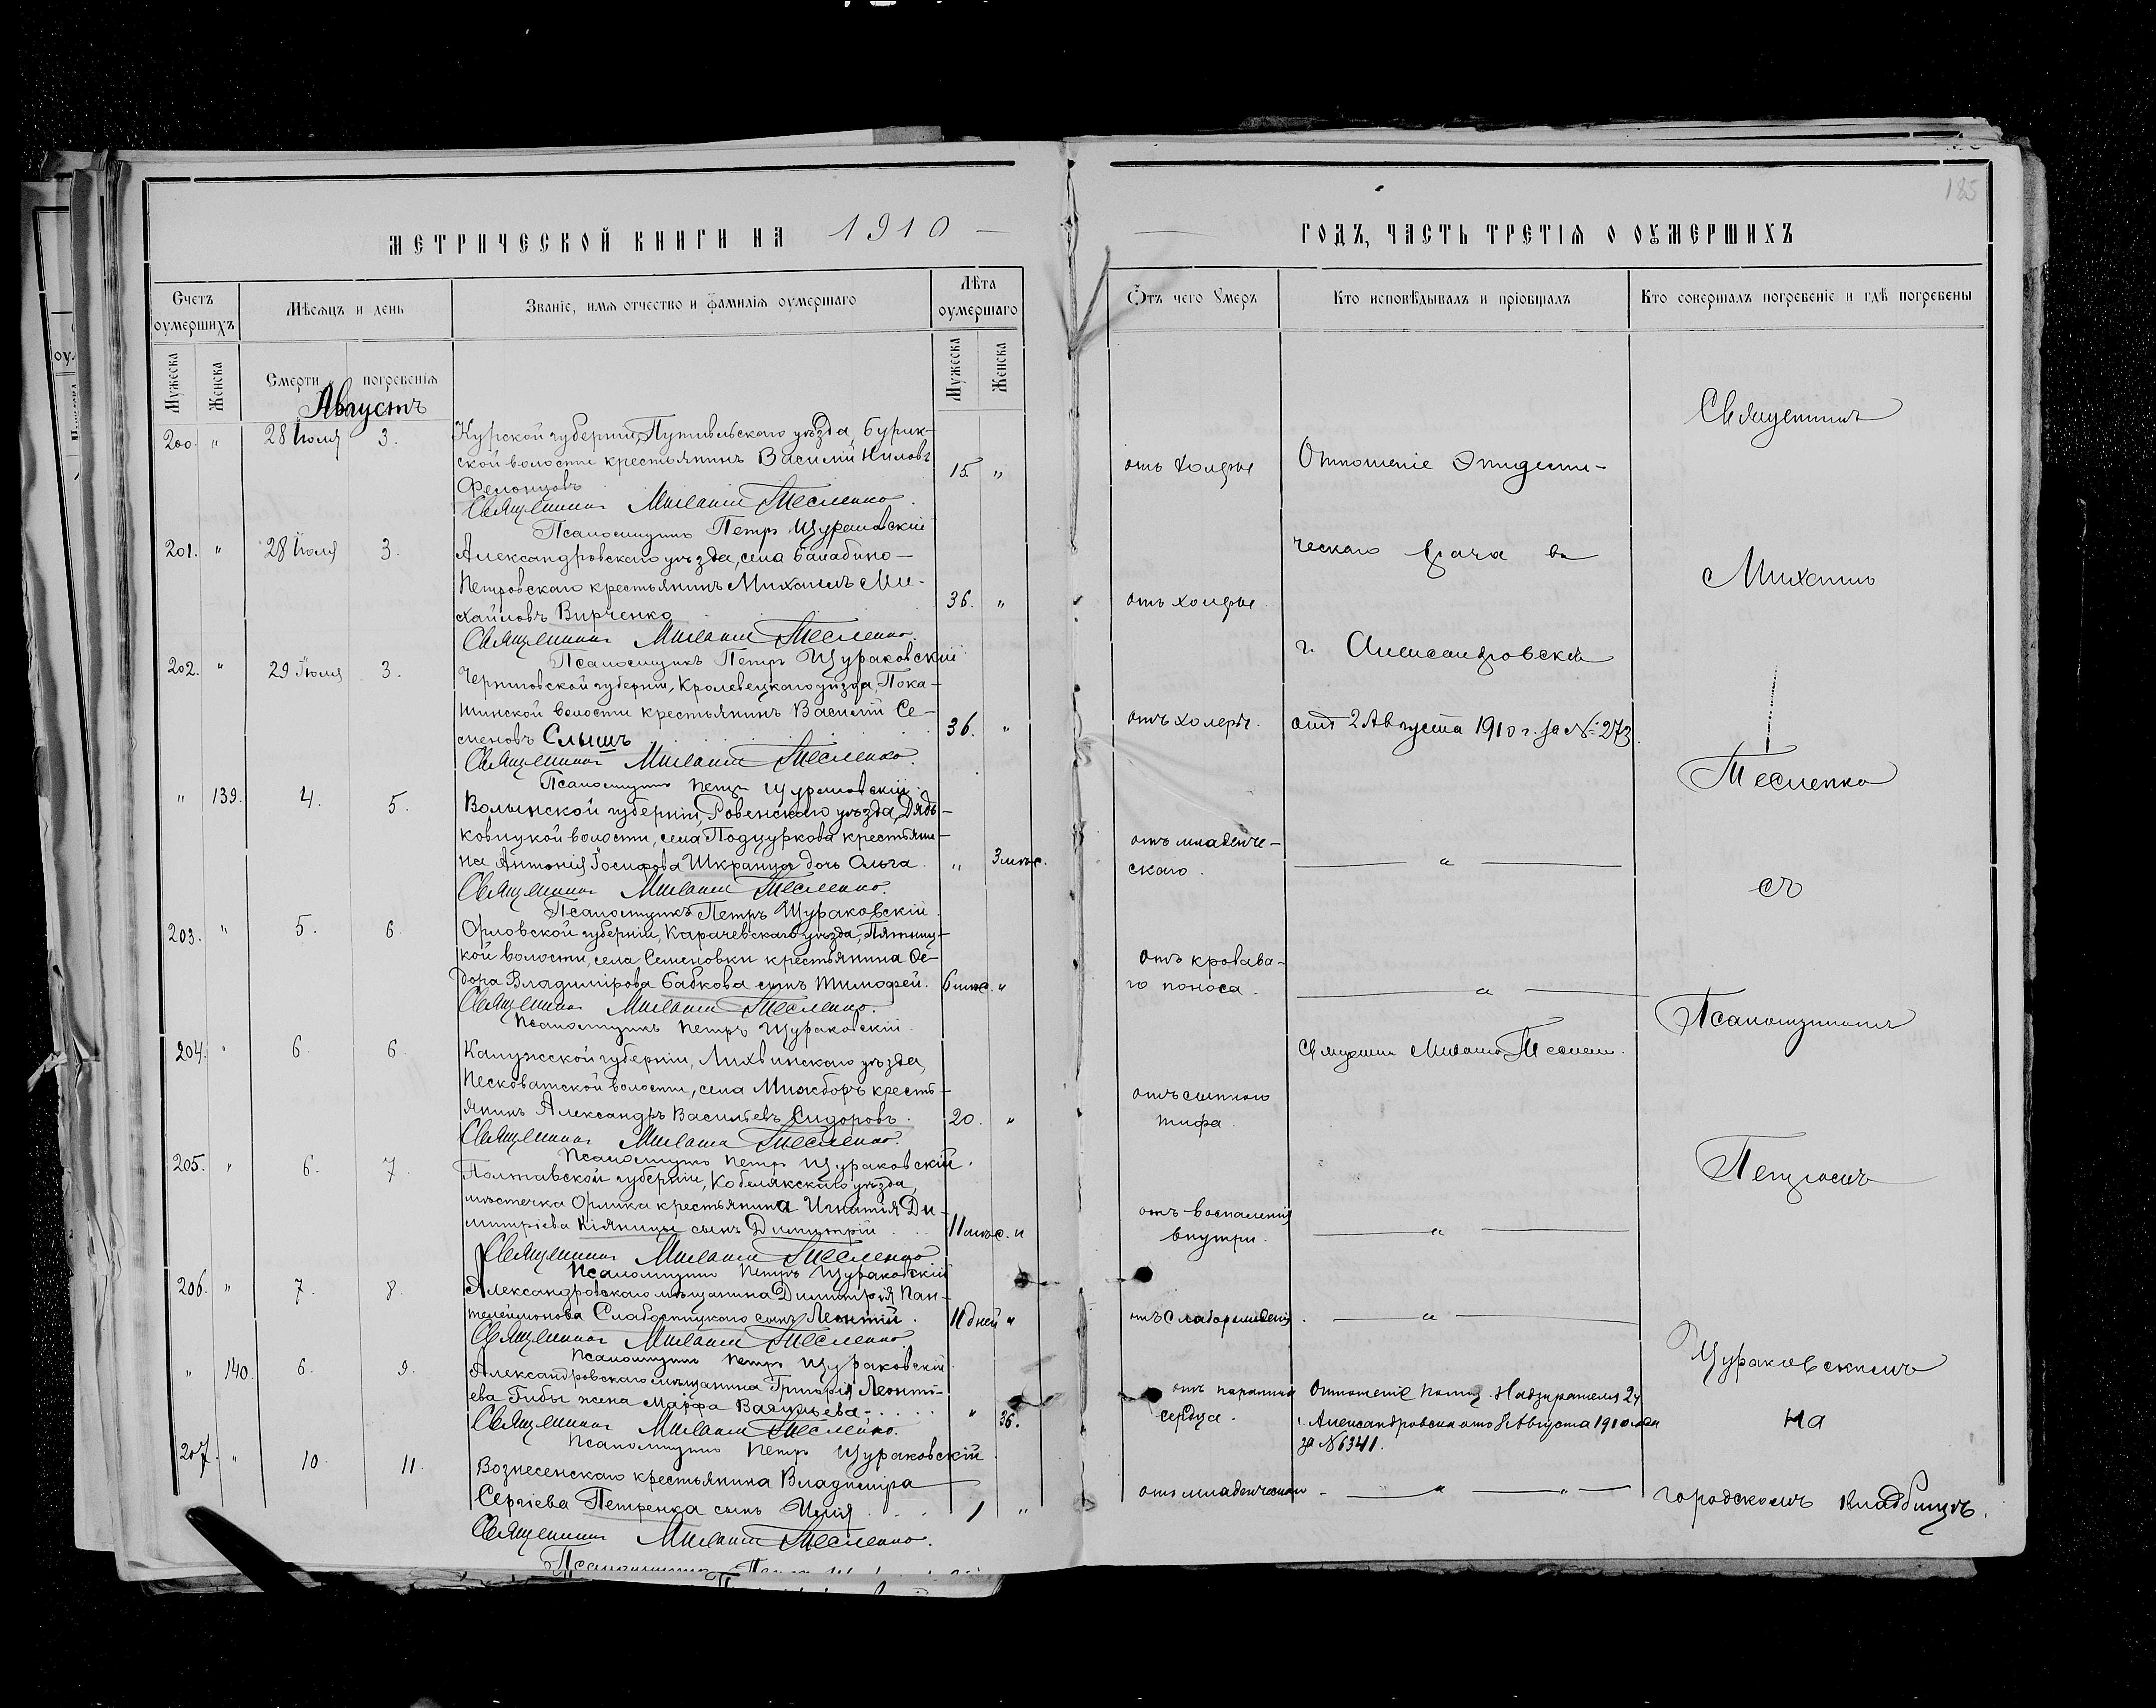 185
МЕТРИЧЕСКОЙ КНИГИ НА 1910
ГОДЪ, ЧАСТЬ ТРЕТІЯ О ОУМЕРШИХЪ
Счетъ оумершихъ
Мѣсяцъ и день
Званіе, имя отчество и фамилія оумершаго
Лѣта оумершаго
Отъ чего Умеръ
Кто исповѣдывалъ и пріобщалъ
Кто совершалъ погребеніе и гдѣ погребены
Мужеска
Женска
Смерти
погребенія
Мужеска
Женска
Августъ
200. " 28 Іюля 3.
Курской губерніи, Путивльскаго уѣзда, Бурин-
ской волости крестьянинъ Василій Ниловъ
15. "
Священникъ Михаилъ Тесленко.
Псаломщикъ Петръ Щураковскій
отъ холеры
201. " 28 Іюля 3.
Александровскаго уѣзда, села Балабино-
Петровскаго крестьянинъ Михаилъ Ми-
хайловъ Вирченко
36. "
Священникъ Михаилъ Тесленко.
Псаломщикъ Петръ Щураковскій
отъ холеры.
202. " 29 Іюля 3.
Черниговской губерніи, Кролевецкаго уѣзда, Пока-
шинской волости крестьянинъ Василій Се-
меновъ Слышъ
36. "
Священникъ Михаилъ Тесленко.
Псаломщикъ Петръ Щураковскій
отъ холеры.
Отношеніе Эпидеми-
ческаго врача въ
г. Александровскѣ
отъ 2 Августа 1910 г. за №: 273.
" 139. 4. 5.
Волынской губерніи, Ровенскаго уѣзда, Дядь-
ковицкой волости, села Подцуркова крестьяни-
на Антонія Іосифова дочь Ольга.
" 3 мѣс.
Священникъ Михаилъ Тесленко.
Псаломщикъ Петръ Щураковскій.
отъ младенче-
скаго. "
203. " 5. 6.
Орловской губерніи, Карачевскаго уѣзда, Пятниц-
кой волости, села Семеновки крестьянина Ѳе-
дора Владимірова Бабкова сынъ Тимофей.
6 мѣс. "
Священникъ Михаилъ Тесленко.
Псаломщикъ Петръ Щураковскій.
отъ кровава-
го поноса. "
204. " 6. 6.
Калужской губерніи, Лихвинскаго уѣзда,
Песковатской волости, села кресть-
янинъ Александръ Васильевъ Сидоровъ.
20. "
Священникъ Михаилъ Тесленко.
Псаломщикъ Петръ Щураковскій.
отъ сыпного
тифа.
Священникъ Михаилъ Тесленко.
205. " 6. 7.
Полтавской губерніи, Кобелякскаго уѣзда,
мѣстечка Орлика крестьянина Игнатія Ди-
митріева Кіяницы сынъ Димитрій
11 мѣс. "
Священникъ Михаилъ Тесленко
Псаломщикъ Петръ Щураковскій
отъ воспаленія
внутри. "
206. " 7. 8.
Александровскаго мѣщанина Димитрія Пан-
телеймонова Слабостицкаго сынъ Леонтій.
11 дней "
Священникъ Михаилъ Тесленко
Псаломщикъ Петръ Щураковскій.
отъ слаборожденія. "
" 140. 6. 9.
Александровскаго мѣщанина Григорія Леонті-
ева Гибы жена Марфа Васильева
" 36.
Священникъ Михаилъ Тесленко.
Псаломщикъ Петръ Щураковскій
отъ паралича
сердца.
Отношеніе Полиц. Надзирателя 2 ч
г. Александровска отъ 8 Августа 1910 года
за № 6341.
207. " 10. 11.
Вознесенскаго крестьянина Владиміра
Сергіева Петренка сынъ Илія
1 "
Священникъ Михаилъ Тесленко.
Псаломщикъ
отъ младенческаго " "
Священникъ
Михаилъ
Тесленко
съ
Псаломщикомъ
Петромъ
Щураковскимъ
на
городскомъ кладбищѣ.